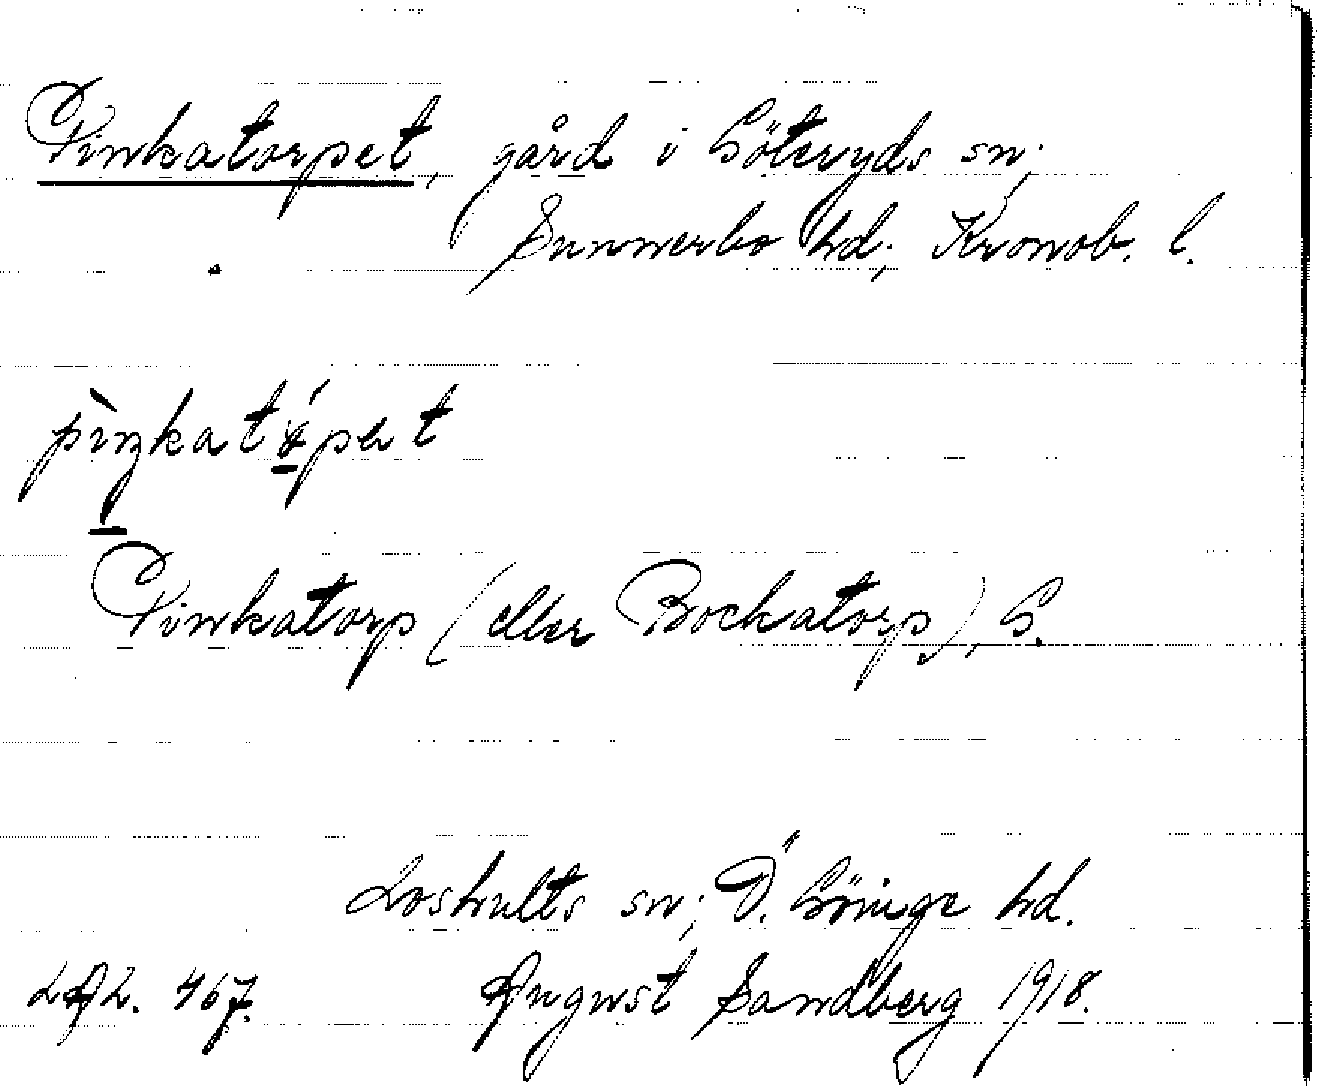 Pinkatorpet, gård i Göteryds sn;
Sunnerbo hd; Kronob. l.
Pinkatorp (eller Bockatorp), G.
Loshults sn; Ö. Göinge hd.
LAL. 467. August Sandberg 1918.